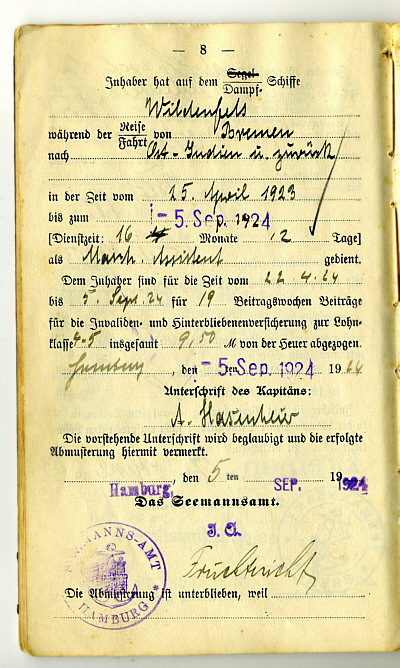 — 8 —
Inhaber hat auf dem Segel- Schiffe
Dampf-
Wildenfels
während der Reise von Bremen
Fahrt
nach Ost-Indien u. zurück
in der Zeit vom 25. April 1923
bis zum - 5. Sep. 1924
[Dienstzeit: 16 Monate 12 Tage]
als Masch. Assistent gedient.
Dem Inhaber sind für die Zeit vom 22 4. 24
bis 5. Sept. 24 für 19 Beitragswochen Beiträge
für die Invaliden- und Hinterbliebenenversicherung zur Lohn-
klasse 4-5 insgesamt 9,50 M von der Heuer abgezogen.
Hamburg, den - 5. Sep. 1924 1924
Unterschrift des Kapitäns:
A.
Die vorstehende Unterschrift wird beglaubigt und die erfolgte
Abmusterung hiermit vermerkt.
Hamburg, den 5 ten SEP. 1924
Das Seemannsamt.
J. A.
SEEMANNS-AMT
HAMBURG
Die Abmusterung ist unterblieben, weil